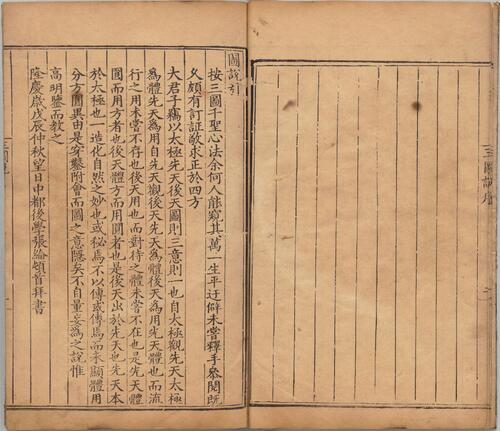 圖說引
按三圖千聖心法余何人能窺其萬一生平迂僻未嘗釋手參閱既
久頗有訂証敬求正於四方
大君子竊以太極先天後天圖則三意則一也自太極觀先天太極
為體先天為用自先天觀後天先天為體後天為用先天體也而流
行之用未嘗不存也後天用也而對待之體未嘗不在也是先天體
圓而用方者也後天體方而用圓者也是後天出於先天也先天本
於太極也一造化自然之妙也或秘焉不以傳或傳焉而未顯體用
分方圓異由是安鑿附會而圖之意隱矣不自量妄為之說惟
高明鑒而教之
隆慶歲戊辰仲秋望日中都後學張綸頓首拜書
三圖說
一
三圖說序
二